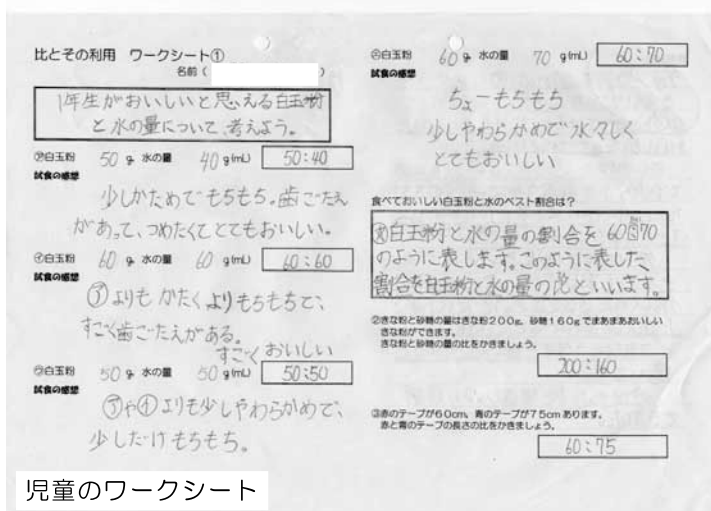 比とその利用 ワークシート①
名前（ ）
1年生がおいしいと思える白玉粉
と水の量について、考えよう。
㋐白玉粉 50 g 水の量 40 g(mL) 50:40
試食の感想
少しかためでもちもち。歯ごたえ
があって、つめたくてとてもおいしい。
㋑白玉粉 60 g 水の量 60 g(mL) 60:60
試食の感想
㋐よりもかたくよりもちもちで、
すごく歯ごたえがある。
すごくおいしい
㋒白玉粉 50 g 水の量 50 g(mL) 50:50
試食の感想
㋐や㋑よりも少しやわらかめで、
少しだけもちもち。
白玉粉 60 g 水の量 70 g(mL) 60:70
試食の感想
ちょーもちもち
少しやわらかめで水々しく
とてもおいしい
食べておいしい白玉粉と水のベスト割合は？
白玉粉と水の量の割合を60:70
のように表します。このように表した、
割合を白玉粉と水の量の比といいます。
②きな粉と砂糖の量はきな粉200g、砂糖160gでまあまあおいしい
きな粉ができます。
きな粉と砂糖の量の比をかきましょう。
200:160
③赤のテープが60cm、青のテープが75cmあります。
赤と青のテープの長さの比をかきましょう。
60:75
児童のワークシート